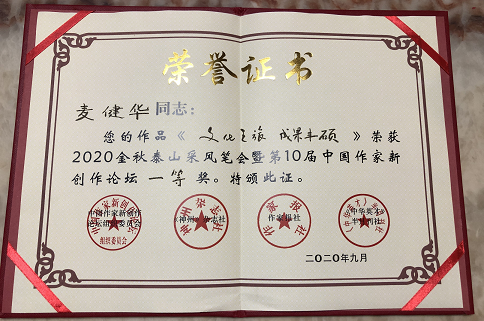 荣誉证书
麦健华同志：
您的作品《文化之旅 成果丰硕》荣获
2020金秋泰山采风笔会暨第10届中国作家新
创作论坛一等奖。特颁此证。
中国作家新创作
论坛组织委员会
组织委员会
神州杂志社
作家报社
二〇二〇年九月